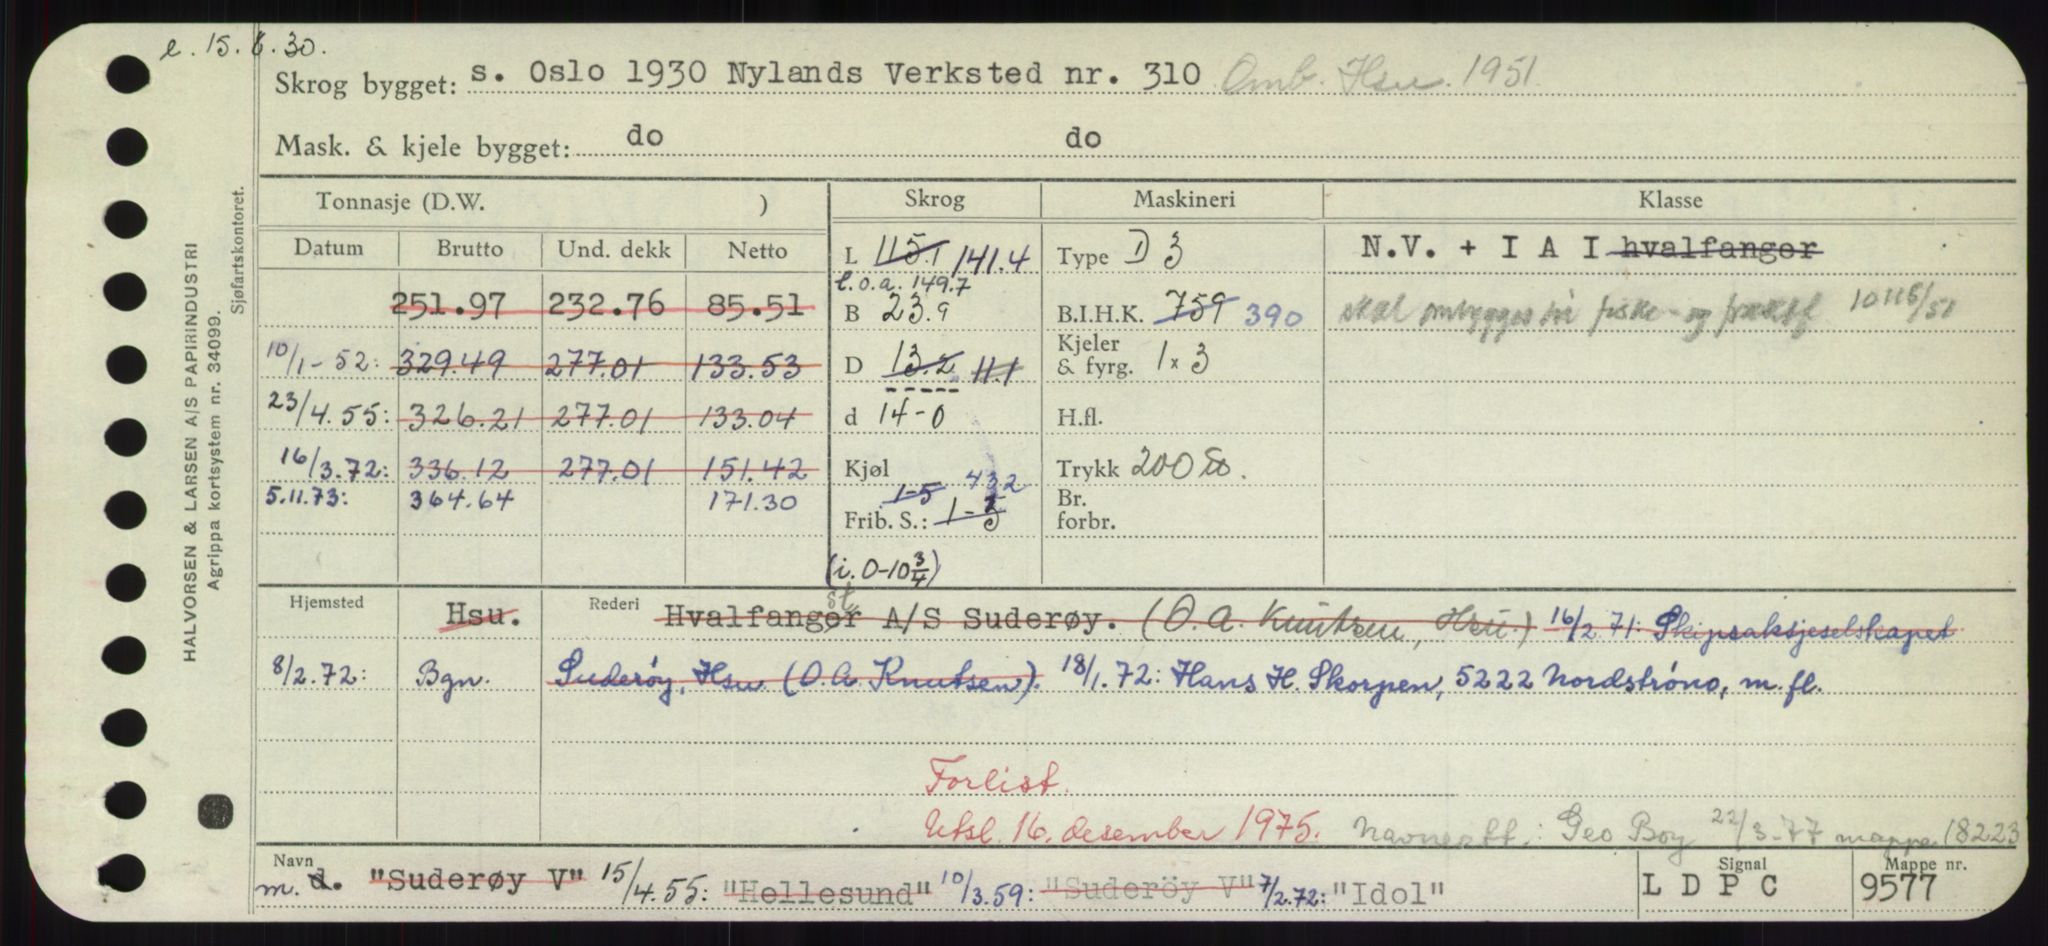 e. 15.6.30.
Skrog bygget: s. Oslo 1930 Nylands Verksted nr. 310 Omb. Hsu. 1951.
Mask. & kjele bygget: do do
Tonnasje (D.W. ) Skrog Maskineri Klasse
Datum Brutto Und. dekk Netto L 115.1 141.4 Type D 3 N.V. + I A I hvalfanger
l.o.a. 149.7
251.97 232.76 85.51 B 23.9 B.I.H.K. 759 390 skal ombygges til fiske- og
10/1-52: 329.49 277.01 133.53 D 13.2 11.1 Kjeler & fyrg. 1 x 3
23/4.55: 326.21 277.01 133.04 d 14-0 H.fl.
16/3.72: 336.12 277.01 151.42 Kjøl Trykk 200
5.11.73: 364.64 171.30 1-5 432 Br. forbr.
Frib. S.: 1-5
(i. 0-10 3/4)
Hjemsted Hsu. Rederi Hvalfangerst A/S Suderøy. (O.A. Knutsen, Hsu.) 16/2.71: Skipsaksjeselskapet
8/2.72: Bgn. Suderøy, Hsu (O.A. Knutsen). 18/1.72: Hans H. Skorpen, 5222 Nordstrøno, m.fl.
Forlist.
Utsl. 16. desember 1975. Navnerett: Geo Boy 22/3-77 mappe 18223
Navn m. d. "Suderøy V" 15/4.55: "Hellesund" 10/3.59: "Suderöy V" 7/2.72: "Idol" Signal LDPC Mappe nr. 9577
HALVORSEN & LARSEN A/S PAPIRINDUSTRI
Agrippa kortsystem nr. 34099.
Sjøfartskontoret.